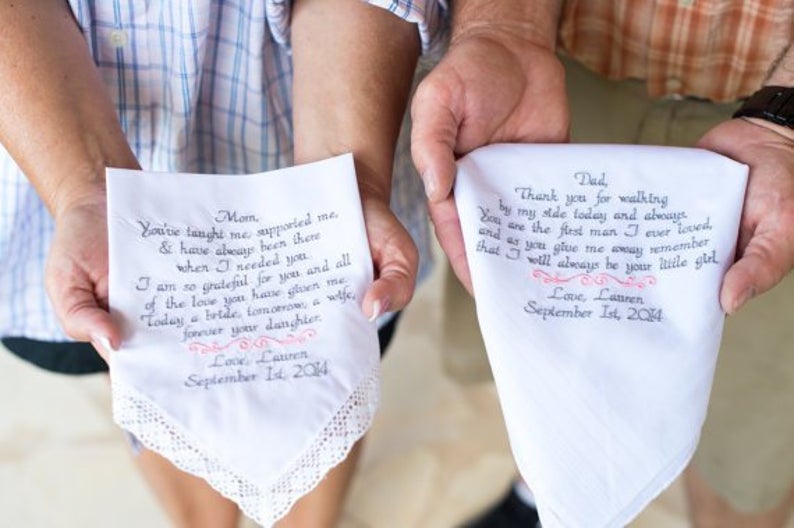 Mom,
You've taught me, supported me,
& have always been there
when I needed you.
I am so grateful for you and all
of the love you have given me.
Today a bride, tomorrow, a wife,
forever your daughter.
Love, Lauren
September 1st, 2014
Dad,
Thank you for walking
by my side today and always.
You are the first man I ever loved,
and as you give me away remember
that I will always be your little girl.
Love, Lauren
September 1st, 2014